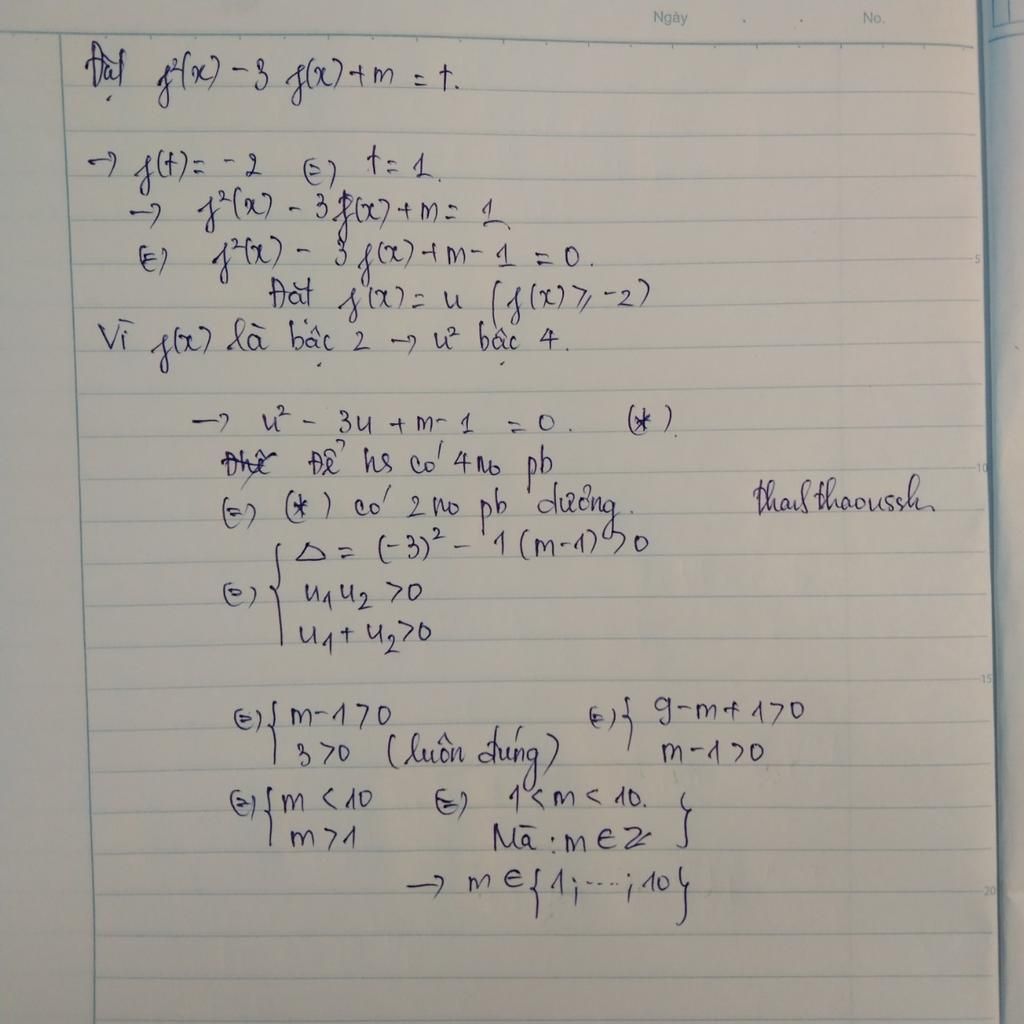 Ngày . . No.
Đặt f²(x) - 3 f(x) + m = t.
→ f(t) = -2 (=) t = 1.
→ f²(x) - 3f(x) + m = 1
(=) f²(x) - 3 f(x) + m - 1 = 0.
Đặt f(x) = u (f(x) ≥ -2)
Vì f(x) là bậc 2 → u² bậc 4.
→ u² - 3u + m - 1 = 0. (*).
Để hs có 4 no pb
(=) (*) có 2 no pb dương.
Δ = (-3)² - 1(m-1) > 0
(=) { u1 u2 > 0
u1 + u2 > 0
(=) { m - 1 > 0 (=) { 9 - m + 1 > 0
3 > 0 (luôn đúng) m - 1 > 0
(=) { m < 10 (=) 1 < m < 10. }
m > 1 Mà : m ∈ Z
→ m ∈ {1; ....; 10}
5
10
15
20